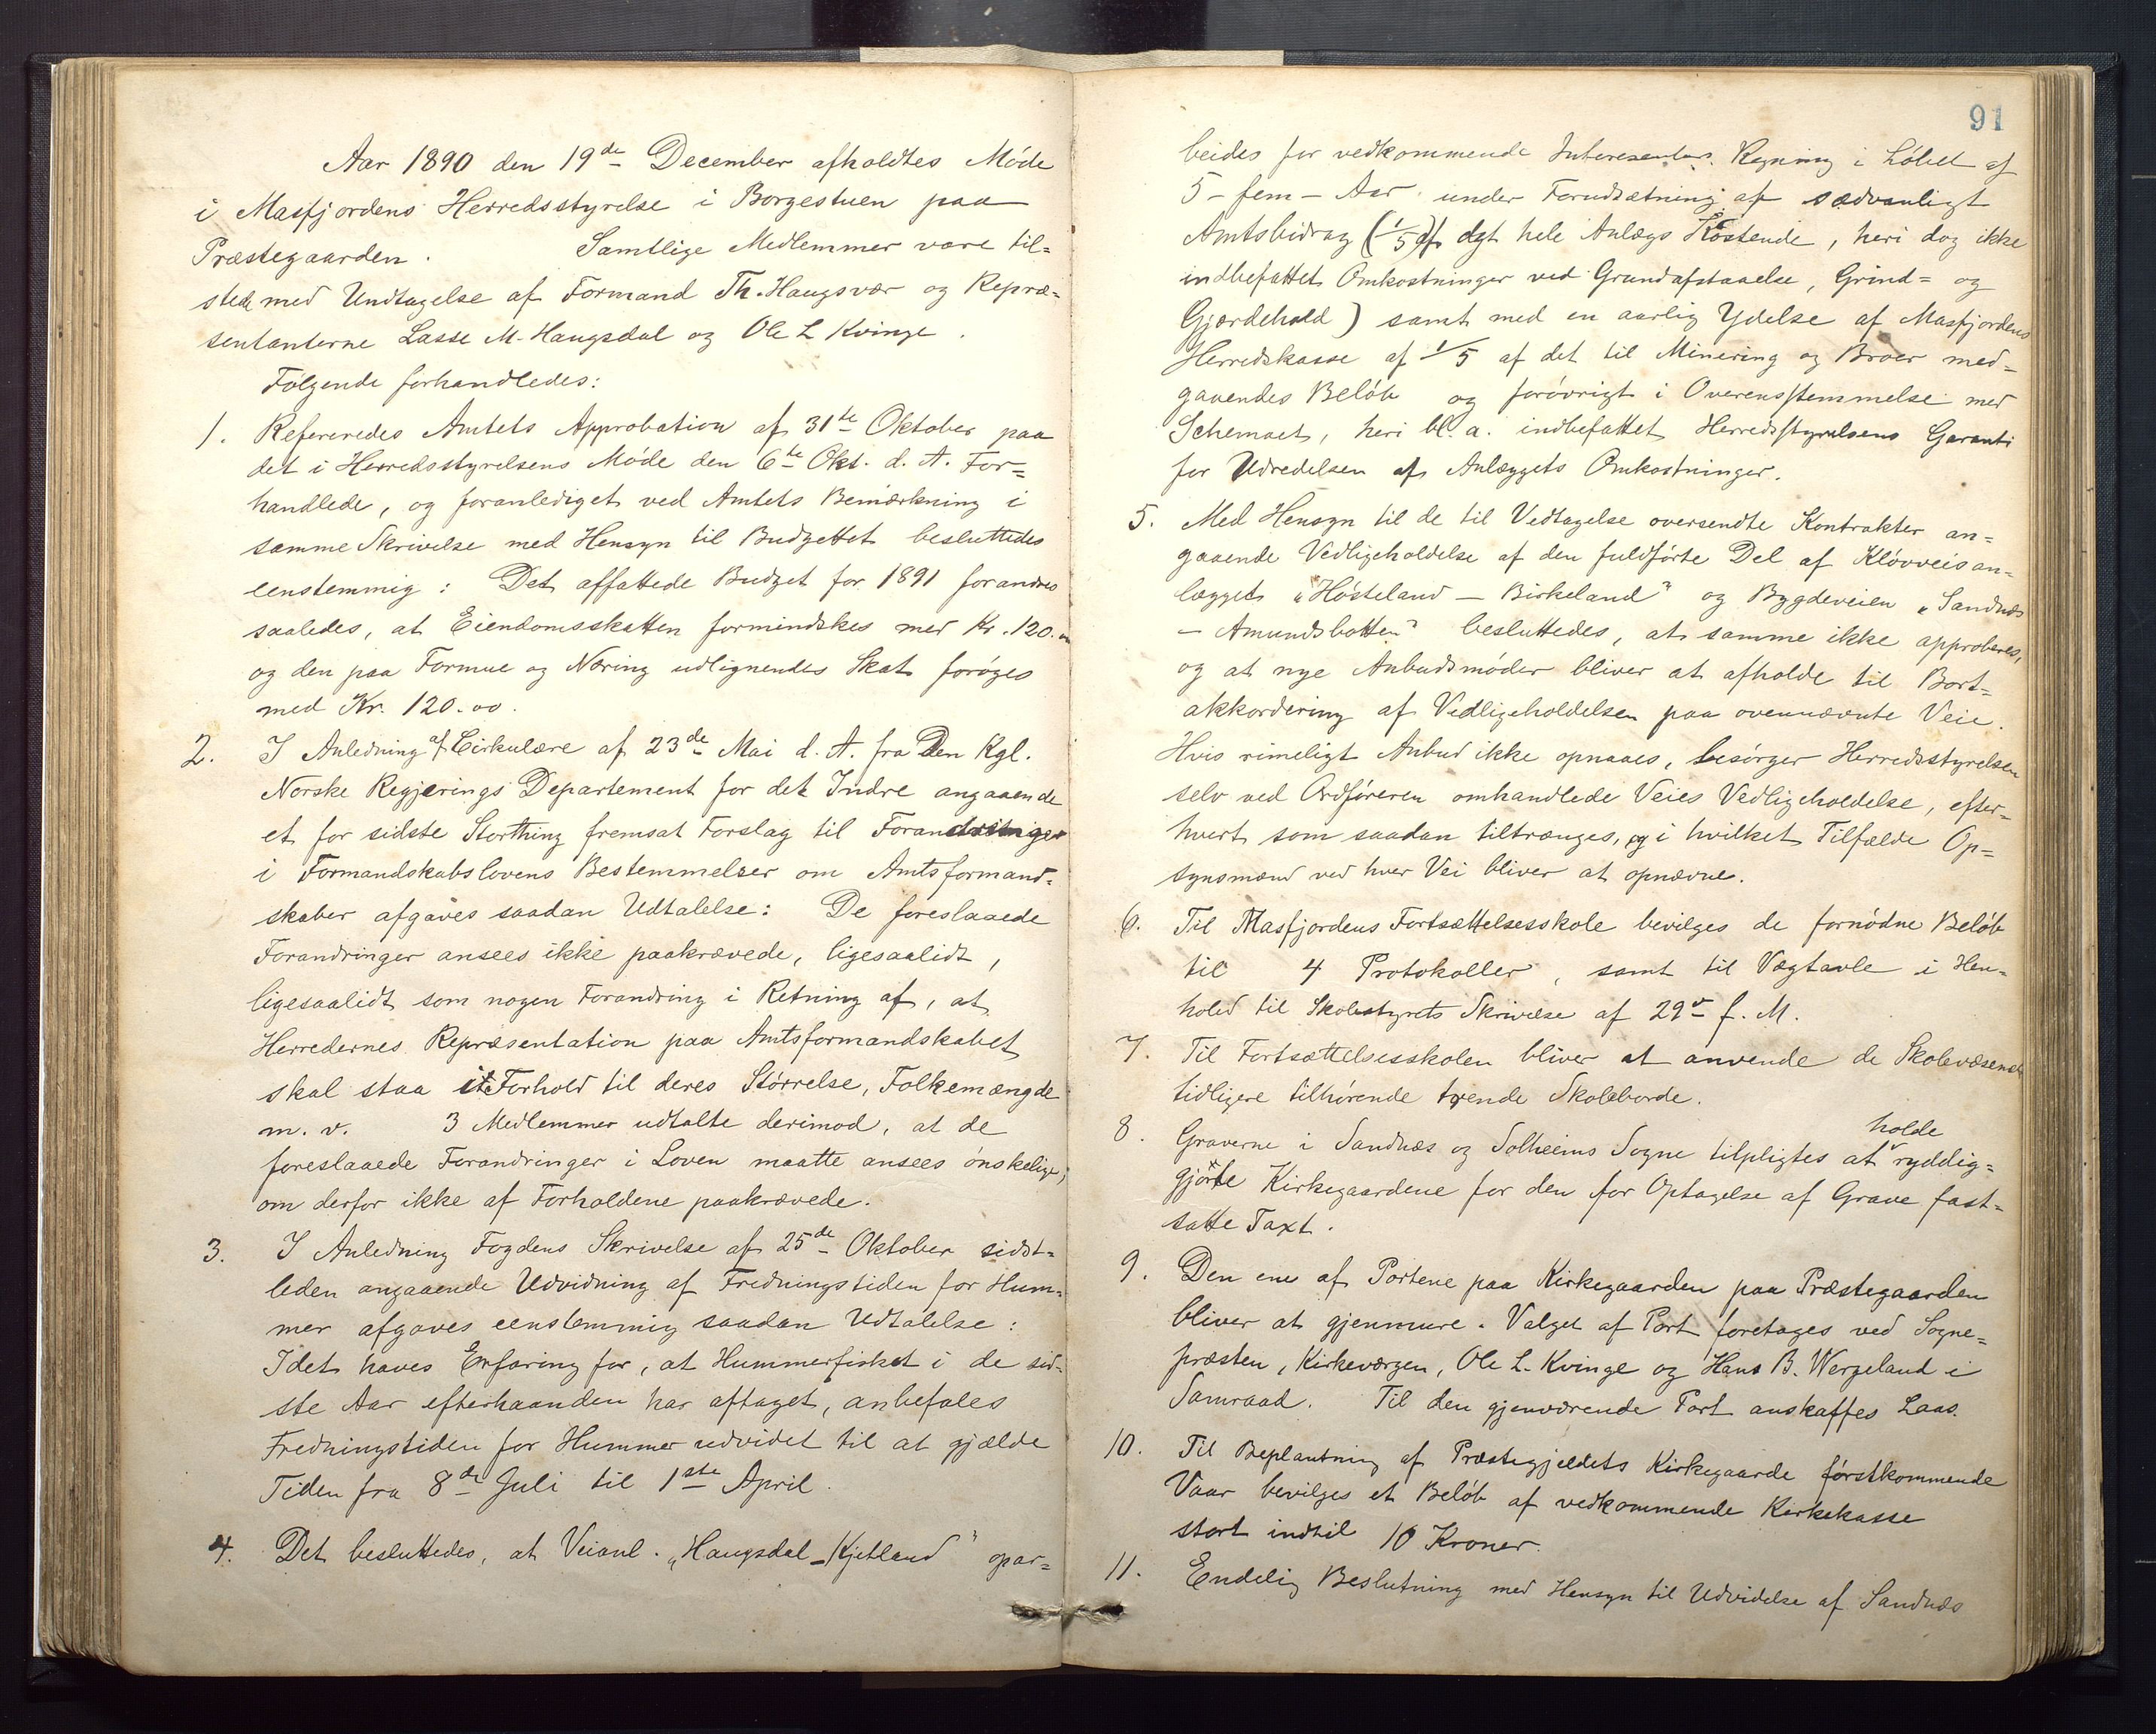 Aar 1890 den 19de December afholdtes Møde
i Masfjordens Herredsstyrelse i Borgestuen paa
Præstegaarden. Samtlige Medlemmer vare til=
stede med Undtagelse af Formand Th. Haugsvær og Repræ=
sentanterne Lasse M. Haugsdal og Ole L Kvinge.
Følgende forhandledes:
1. Refereredes Amtets Approbation af 31te Oktober paa
det i Herredsstyrelsens Møde den 6te Okt. d. A. For=
handlede, og foranlediget ved Amtets Bemærkning i
samme Skrivelse med Hensyn til Budgettet besluttedes
eenstemmig: Det affattede Budget for 1891 forandres
saaledes, at Eiendomsskatten formindskes med Kr. 120.oo
og den paa Formue og Næring udlignendes Skat forøges
med Kr. 120.oo.
2. I Anledning af Cirkulære af 23de Mai d. A. fra Den Kgl.
Norske Regjerings Departement for det Indre angaaende
et for sidste Storthing fremsat Forslag til Forandringer
i Formandskabslovens Bestemmelser om Amtsformand=
skaber afgaves saadan Udtalelse: De foreslaaede
Forandringer ansees ikke paakrævede, ligesaalidt,
ligesaalidt som nogen Forandring i Retning af, at
Herredernes Repræsentation paa Amtsformandskabet
skal staa i Forhold til deres Størrelse, Folkemængde
m. v. 3 Medlemmer udtalte derimod, at de
foreslaaede Forandringer i Loven maatte ansees ønskelige,
om derfor ikke af Forholdene paakrævede.
3. I Anledning Fogdens Skrivelse af 25de Oktober sidst=
leden angaaende Udvidning af Fredningstiden for Hum=
mer afgaves eenstemmig saadan Udtalelse:
Idet haves Erfaring for, at Hummerfisket i de sid=
ste Aar efterhaanden har aftaget, anbefales
Fredningstiden for Hummer udvidet til at gjælde
Tiden fra 8de Juli til 1ste April.
4. Det besluttedes, at Veianl. "Haugsdal - Kjetland" opar=
91
beides for vedkommende Interesenters Regning i Løbet af
5 - fem - Aar under Forudsætning af sædvanligt
Amtsbidrag (1/5 af det hele Anlægs Kostende, heri dog ikke
indbefattet Omkostninger ved Grundafstaaelse, Grind= og
Gjærdehold) samt med en aarlig Ydelse af Masfjordens
Herredskasse af 1/5 af det til Minering og Broer med=
gaaendes Beløb og forøvrigt i Overensstemmelse med
Schemaet, heri bl. a. indbefattet Herredsstyrelsens Garanti
for Udredelsen af Anlæggets Omkostninger.
5. Med Hensyn til de til Vedtagelse oversendte Kontrakter an=
gaaende Vedligeholdelse af den fuldførte Del af Kløvveisan=
lægget "Høsteland - Birkeland" og Bygdeveien "Sandnæs
- Amundsbotten" besluttedes, at samme ikke approberes,
og at nye Anbudsmøder bliver at afholde til Bort=
akkordering af Vedligeholdelsen paa ovennævnte Veie.
Hvis rimeligt Anbud ikke opnaaes, besørger Herredsstyrelsen
selv ved Ordføreren omhandlede Veies Vedligeholdelse, efter=
hvert som saadan tiltrænges, og i hvilket Tilfælde Op=
synsmænd ved hver Vei bliver at opnævne.
6. Til Masfjordens Fortsættelsesskole bevilges de fornødne Beløb
til 4 Protokoller, samt til Vægtavle i Hen=
hold til Skolestyrets Skrivelse af 29de f. M.
7. Til Fortsættelsesskolen bliver at anvende de Skolevæsenet
tidligere tilhørende tvende Skoleborde.
holde
8. Graverne i Sandnæs og Solheims Sogne tilpligtes at ryddig=
gjorte Kirkegaardene for den for Optagelse af Grave fast=
satte Taxt.
9. Den ene af Portene paa Kirkegaarden paa Præstegaarden
bliver at gjenmure. Valget af Port foretages ved Sogne=
præsten, Kirkeværgen, Ole L. Kvinge og Hans B. Wergeland i
Samraad. Til den gjenværende Port anskaffes Laas.
10. Til Beplantning af Præstegjeldets Kirkegaarde førstkommende
Vaar bevilges et Beløb af vedkommende Kirkekasse
stort indtil 10 Kroner.
11. Endelig Beslutning med Hensyn til Udvidelse af Sandnæs